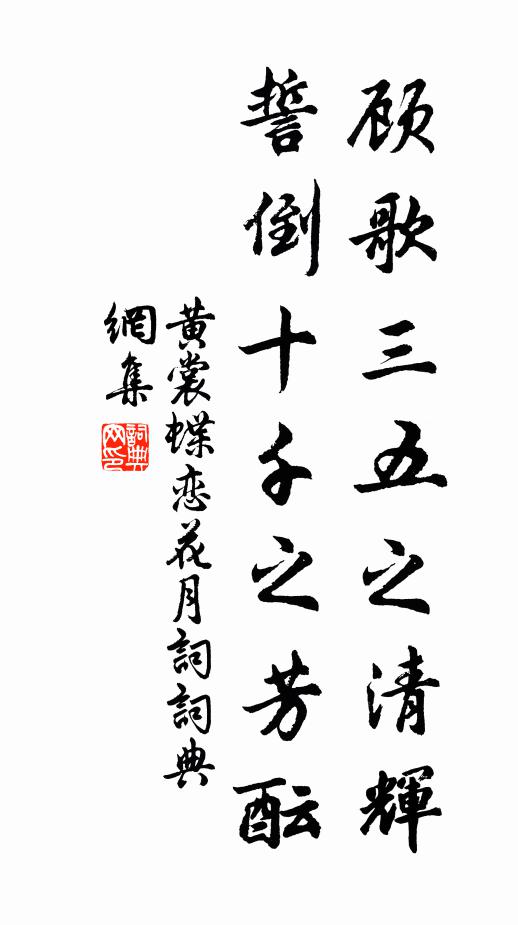 顾歌三五之清輝
誓倒十千之芳酝
黄裳蝶恋花月詞詞典
網集
詞典网印